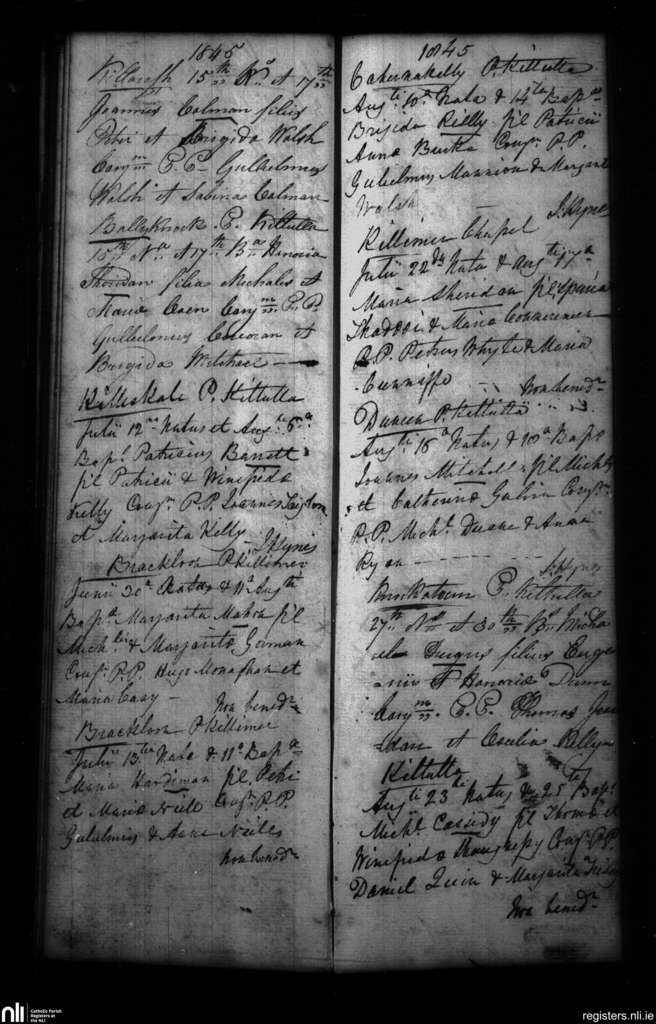 1845
Killargh 15th N. et 17th
Joannes Colman filius
Petri et Brigida Walsh
Conjm P.P. Gulielmus
Walsh et Sabina Colman
BallyKnock P. Kiltulla
15th Na et 17th Ba Honoria
Sheridan filia Michalis et
Maria Coen Conjm P.P.
Gulielmus Corcoran et
Brigida
Killeskale P. Kiltulla
Julii 12 Natus et Augti 6a
Bapt Patricius Barrett
fil Patricii & Winefrida
Kelly Conjm P.P. Joannes
et Margarita Kelly J Hynes
Brackloon P Killimer
Junii 30a Nata & 11a Augti
Bapa Margarita Mahon fil
Michlis & Margarita Gorman
Conjm P.P. Hugo Monaghan et
Maria Casy — Non benedn
Brackloon P Killimer
Julii 13ta Nata & 11a Bapa
Maria Hardiman fil Petri
et Maria Niell Conjm P.P.
Gulielmus & Anne Niell
Non benedn
1845
P. Kiltulla
Augti 10a Nata & 14ta Bapta
Brigida Reilly fil Patricii
Anna Burke Conjm P.P.
Gulielmus Mannion & Margarit
Walsh — J. Hynes
Killimer Chapel
Julii 22da Nata & Augti 17a
Maria Sheridan fil
Thadoei & Maria
P.P. Petrus Whyte & Maria
Cunniffe — Non benedn
P. Kiltulla
Augti 16a Natus & 18a Bapt
Joannes Mitchell fil Michlis
et Catherina Galvin Conjm
P.P. Michl Duane & Anna
Ryan — J. Hynes
P. Kiltulla
27th N. et 30th B. Micha
el filius Euge
nii et Honoria Dunn
Conjm P.P. Thomas Jor
dan et Cecilia
Kiltulla
Augti 23 Natus & 25ta Bapt
Michl Casidy fil Thoma et
Winefrida Conjm P.P.
Daniel Quin & Margarita
Non benedn
nli
Catholic Parish
Registers at
the NLI
registers.nli.ie